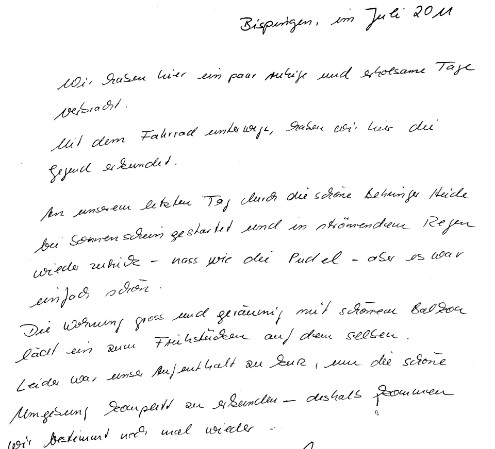 Bispingen, im Juli 2011
Wir haben hier ein paar ruhige und erholsame Tage
verbracht.
Mit dem Fahrrad unterwegs, haben wir hier die
Gegend erkundet.
An unserem letzten Tag durch die schöne Behringer Heide
bei Sonnenschein gestartet und in strömendem Regen
wieder zurück – nass wie die Pudel – aber es war
einfach schön.
Die Wohnung gross und geräumig mit schönem Balkon
lädt ein zum Frühstücken auf dem selben.
Leider war unser Aufenthalt zu kurz, um die schöne
Umgebung komplett zu erkunden – deshalb kommen
wir bestimmt noch mal wieder.